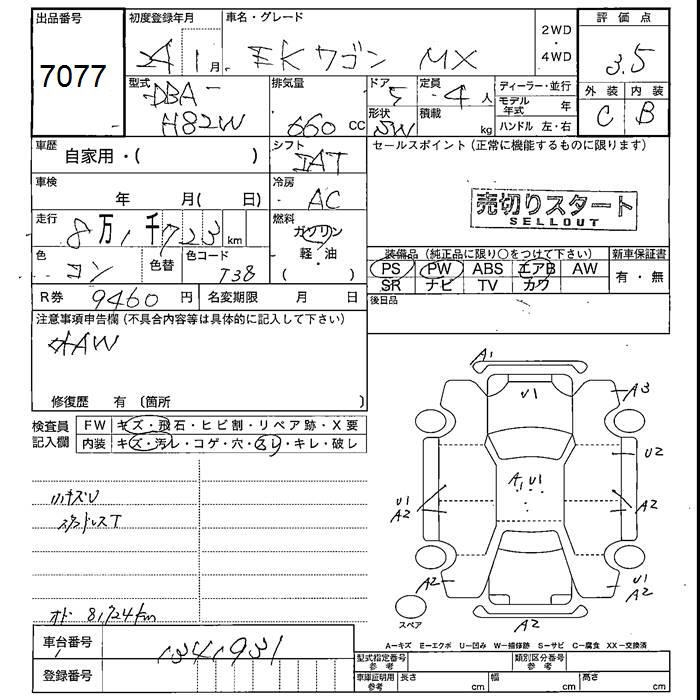 出品番号
7077
初度登録年月
月
車名・グレード
EKワゴン MX
2WD
・
4WD
評価点
3.5
外装 内装
C B
型式
DBA-
H82W
排気量
660 cc
ドア
5
形状
SW
定員
4 人
積載
kg
ディーラー・並行
モデル年式 年
ハンドル 左・右
車歴
自家用・( )
シフト
セールスポイント (正常に機能するものに限ります)
車検
年 月( 日)
冷房
AC
売切りスタート
SELLOUT
走行
8万1千723 km
燃料
ガソリン
軽・油
( )
色
コン
色替
色コード
T38
装備品 (純正品に限り○をつけて下さい)
PS PW ABS エアB AW
SR ナビ TV カワ
新車保証書
有・無
R券 9460 円
名変期限 月 日
後日品
注意事項申告欄 (不具合内容等は具体的に記入して下さい)
修復歴 有 (箇所 )
検査員
記入欄
FW キズ・飛石・ヒビ割・リペア跡・X要
内装 キズ・汚レ・コゲ・穴・スレ・キレ・破レ
ハキズU
スタッドレスT
オド 81724km
A1
U1
A3
U2
A1 U1
U1
A2
A2
A2
U1
A2
スペア
A2
車台番号
登録番号
A-キズ E-エクボ U-凹み W-補修跡 S-サビ C-腐食 XX-交換済
型式指定番号
参考
類別区分番号
参考
車庫証明用
参考
長さ cm
幅 cm
高さ cm